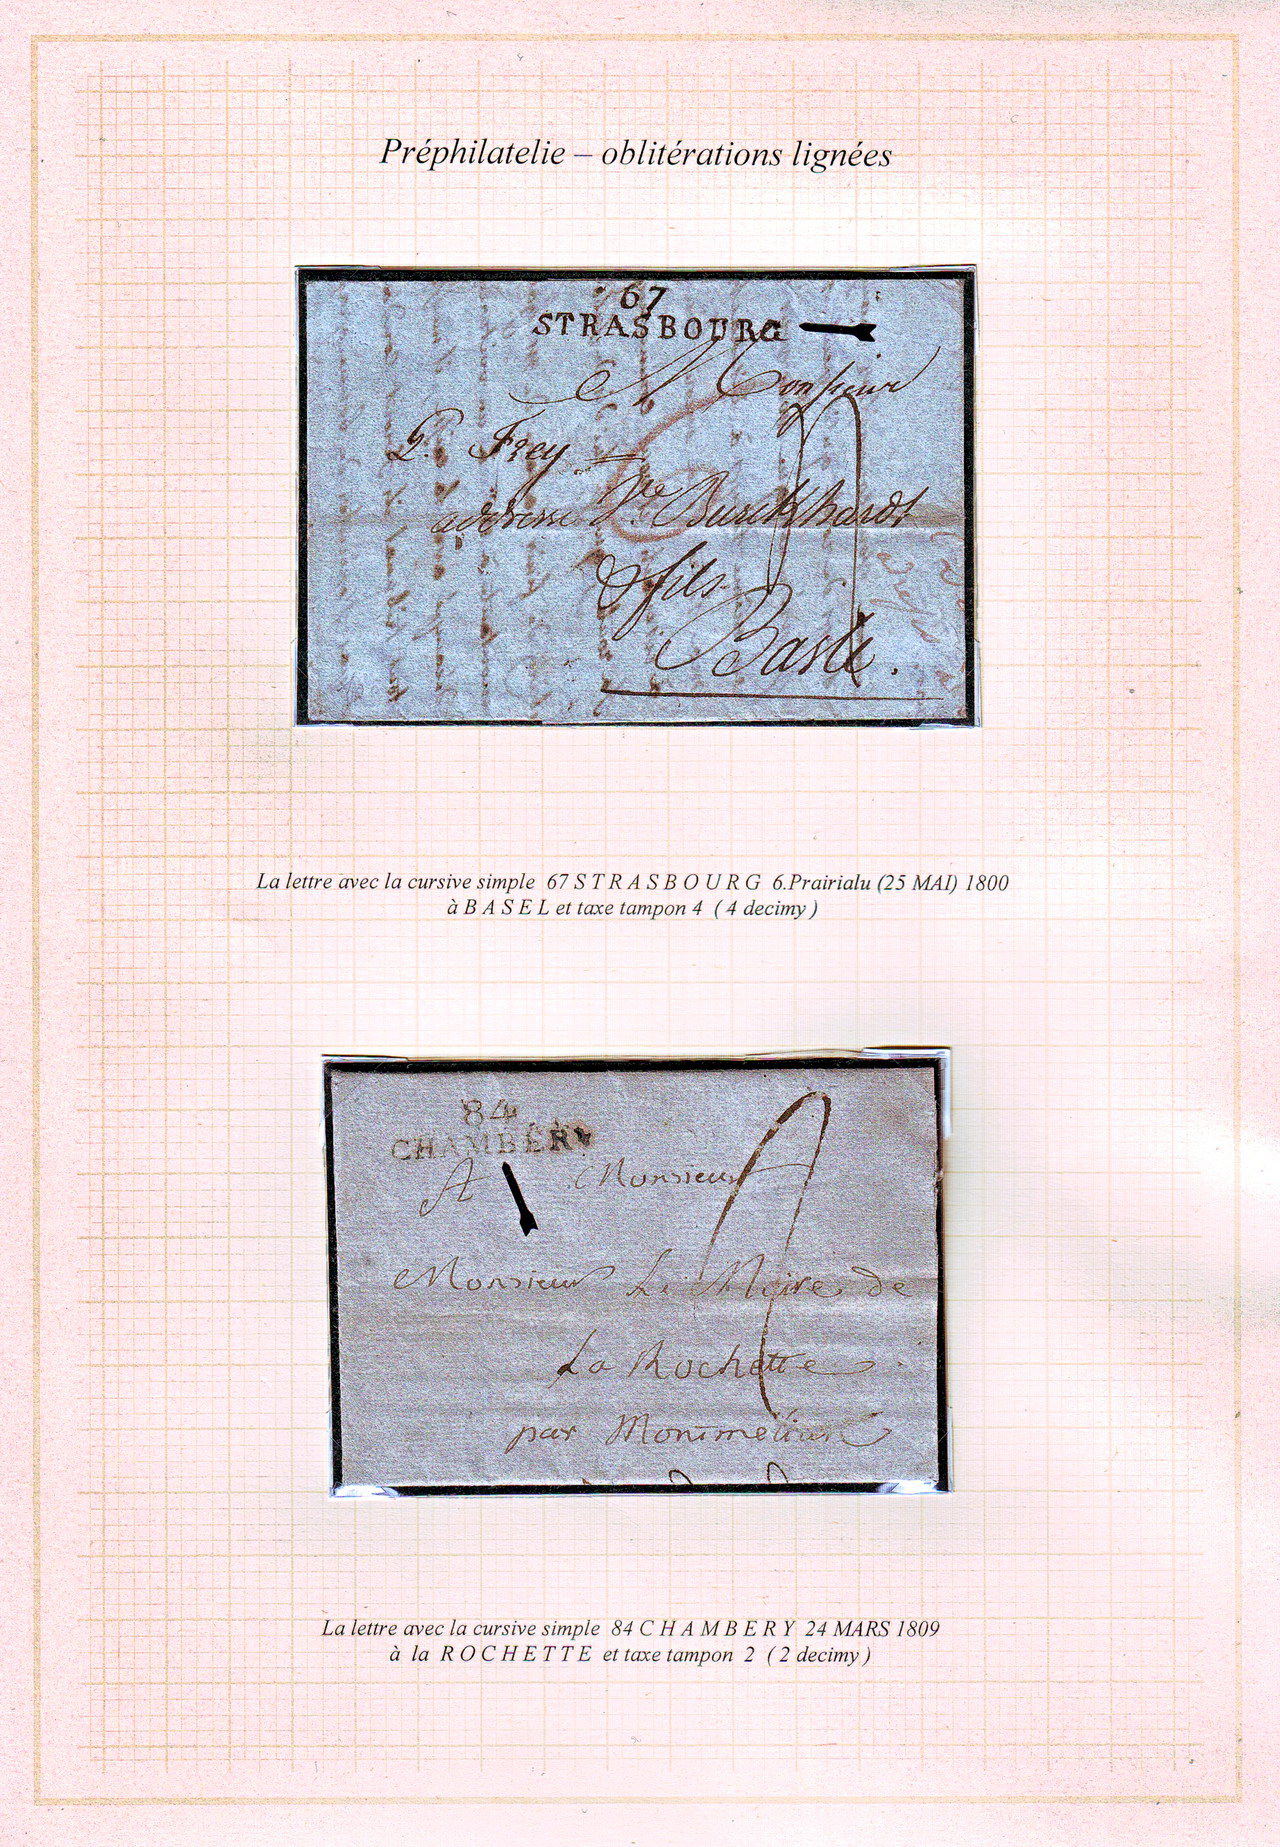 Préphilatelie – oblitérations lignées
67
STRASBOURG
A Monsieur
Frey
adresse Vve Burckhardt
& fils
Basle.
La lettre avec la cursive simple 67 S T R A S B O U R G 6.Prairialu (25 MAI) 1800
à B A S E L et taxe tampon 4 ( 4 decimy )
84
CHAMBÉRY
A Monsieur
Monsieur Le Maire de
La Rochette
par Montmélian
La lettre avec la cursive simple 84 C H A M B E R Y 24 MARS 1809
à la R O C H E T T E et taxe tampon 2 ( 2 decimy )